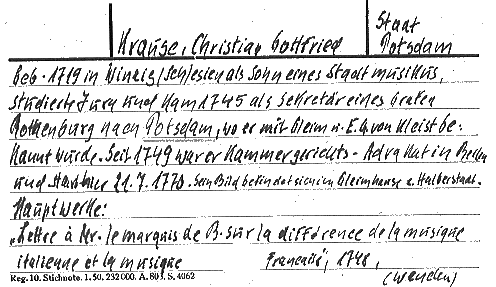 Krause, Christian Gottfried
Staat
Potsdam
Geb. 1719 in Winzig/Schlesien als Sohn eines Stadtmusikus,
studierte Jura und kam 1745 als Sekretär eines Grafen
Rothenburg nach Potsdam, wo er mit Gleim u. E. von Kleist be-
kannt wurde. Seit 1749 war er Kammergerichts-Advokat in Berlin
und starb 21.7.1770. Sein Bild befindet sich im Gleimhause z. Halberstadt.
Hauptwerke:
"Lettre à Mr. le marquis de B. sur la différence de la musique
italienne et la musique française", 1748,
Reg. 10. Stichnote. 1. 50, 232 000. A. 803. S. 4062